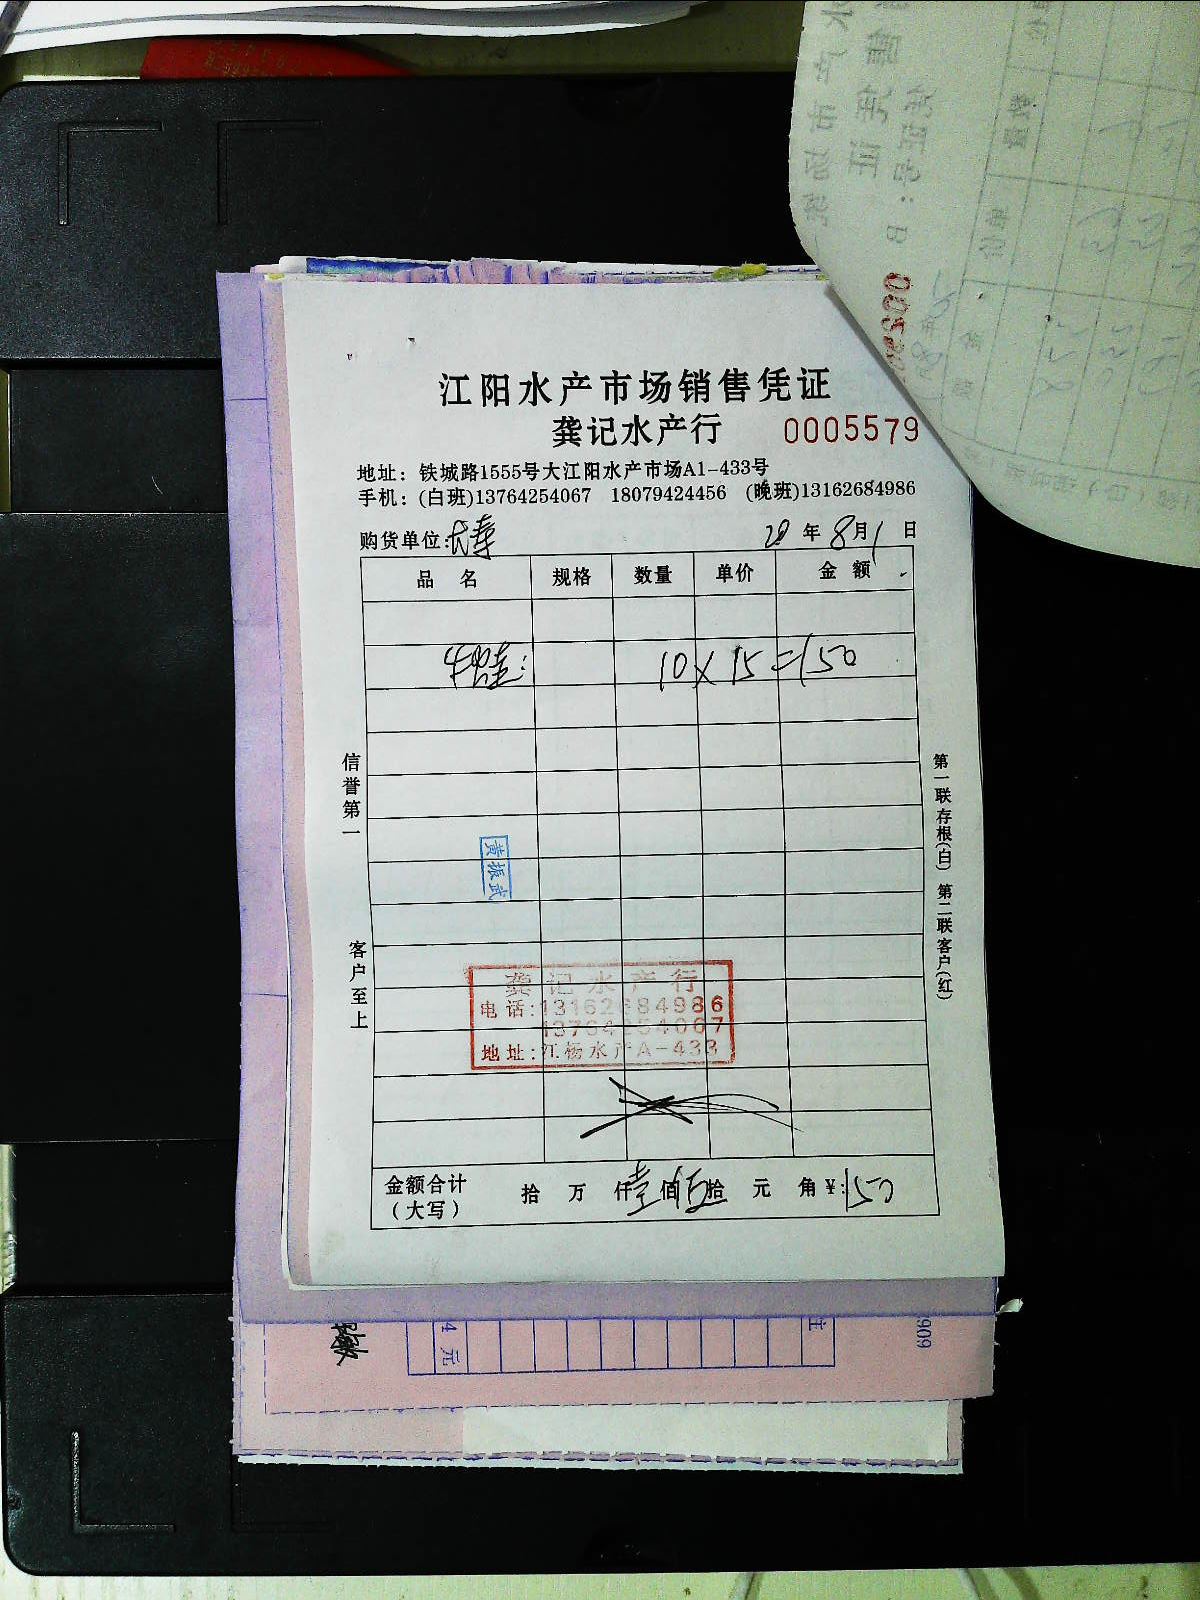 江阳水产市场销售凭证
龚记水产行 0005579
地址：铁城路1555号大江阳水产市场A1-433号
手机：(白班)13764254067 18079424456 (晚班)13162684986
购货单位: 20年8月1日
品名 规格 数量 单价 金额
10×15=150
信誉第一
客户至上
第一联存根(白) 第二联客户(红)
黄振武
龚记水产行
电话:13162684986
13764254067
地址:江杨水产A-433
金额合计 拾 万 仟壹佰伍拾 元 角¥:150
（大写）
4 元
注
909
单价
数量
B 005